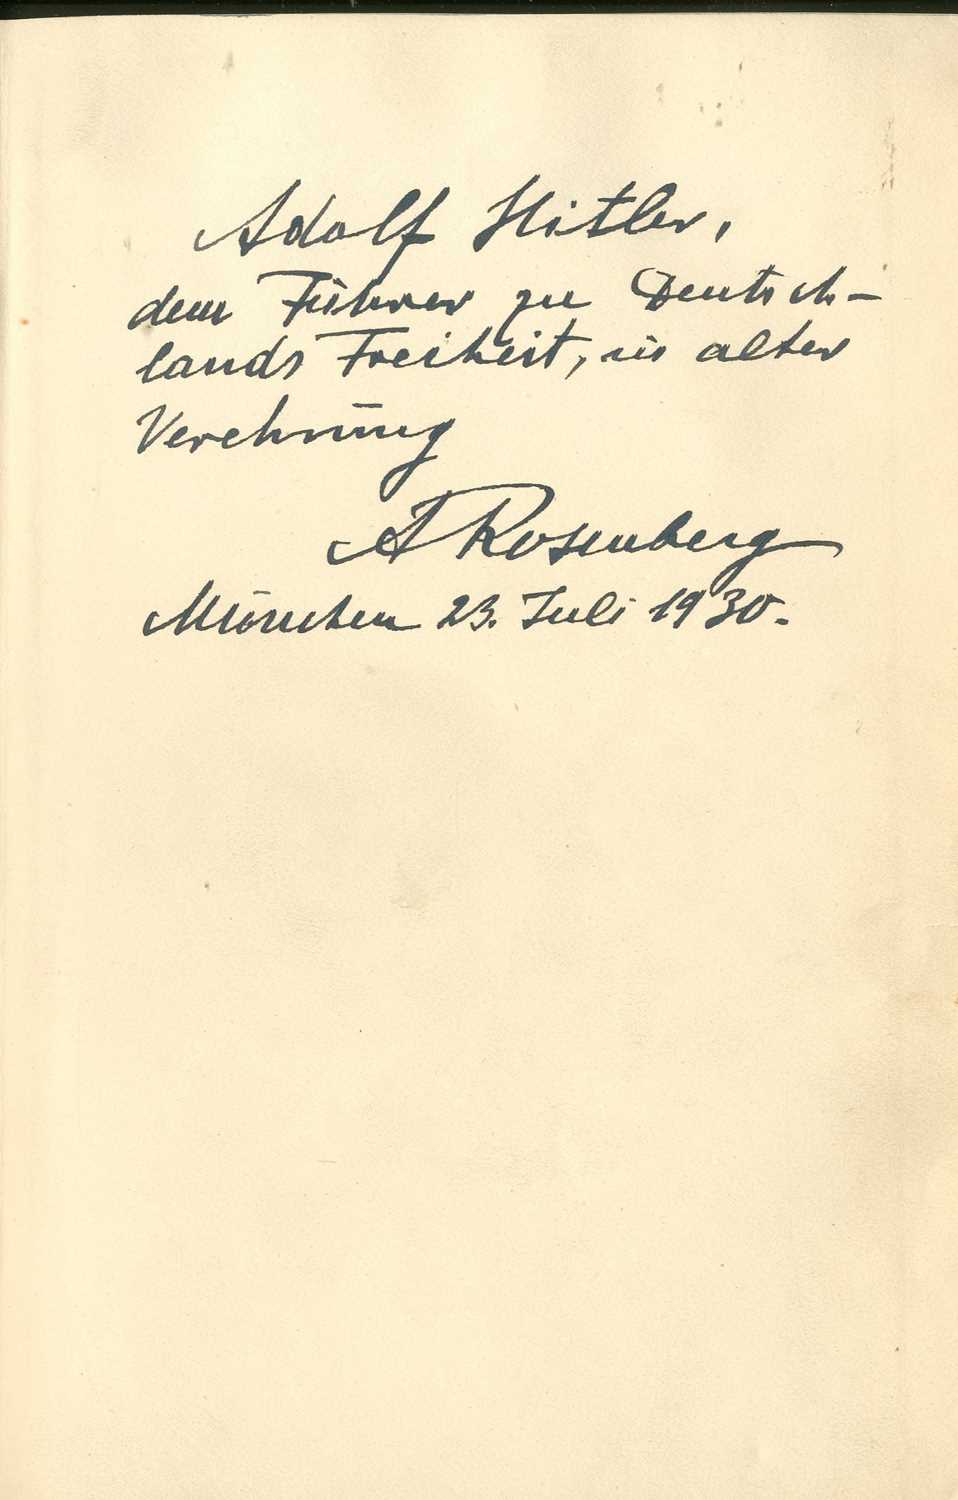 Adolf Hitler,
dem Führer zu Deutsch-
lands Freiheit, in alter
Verehrung
A Rosenberg
München 23. Juli 1930.